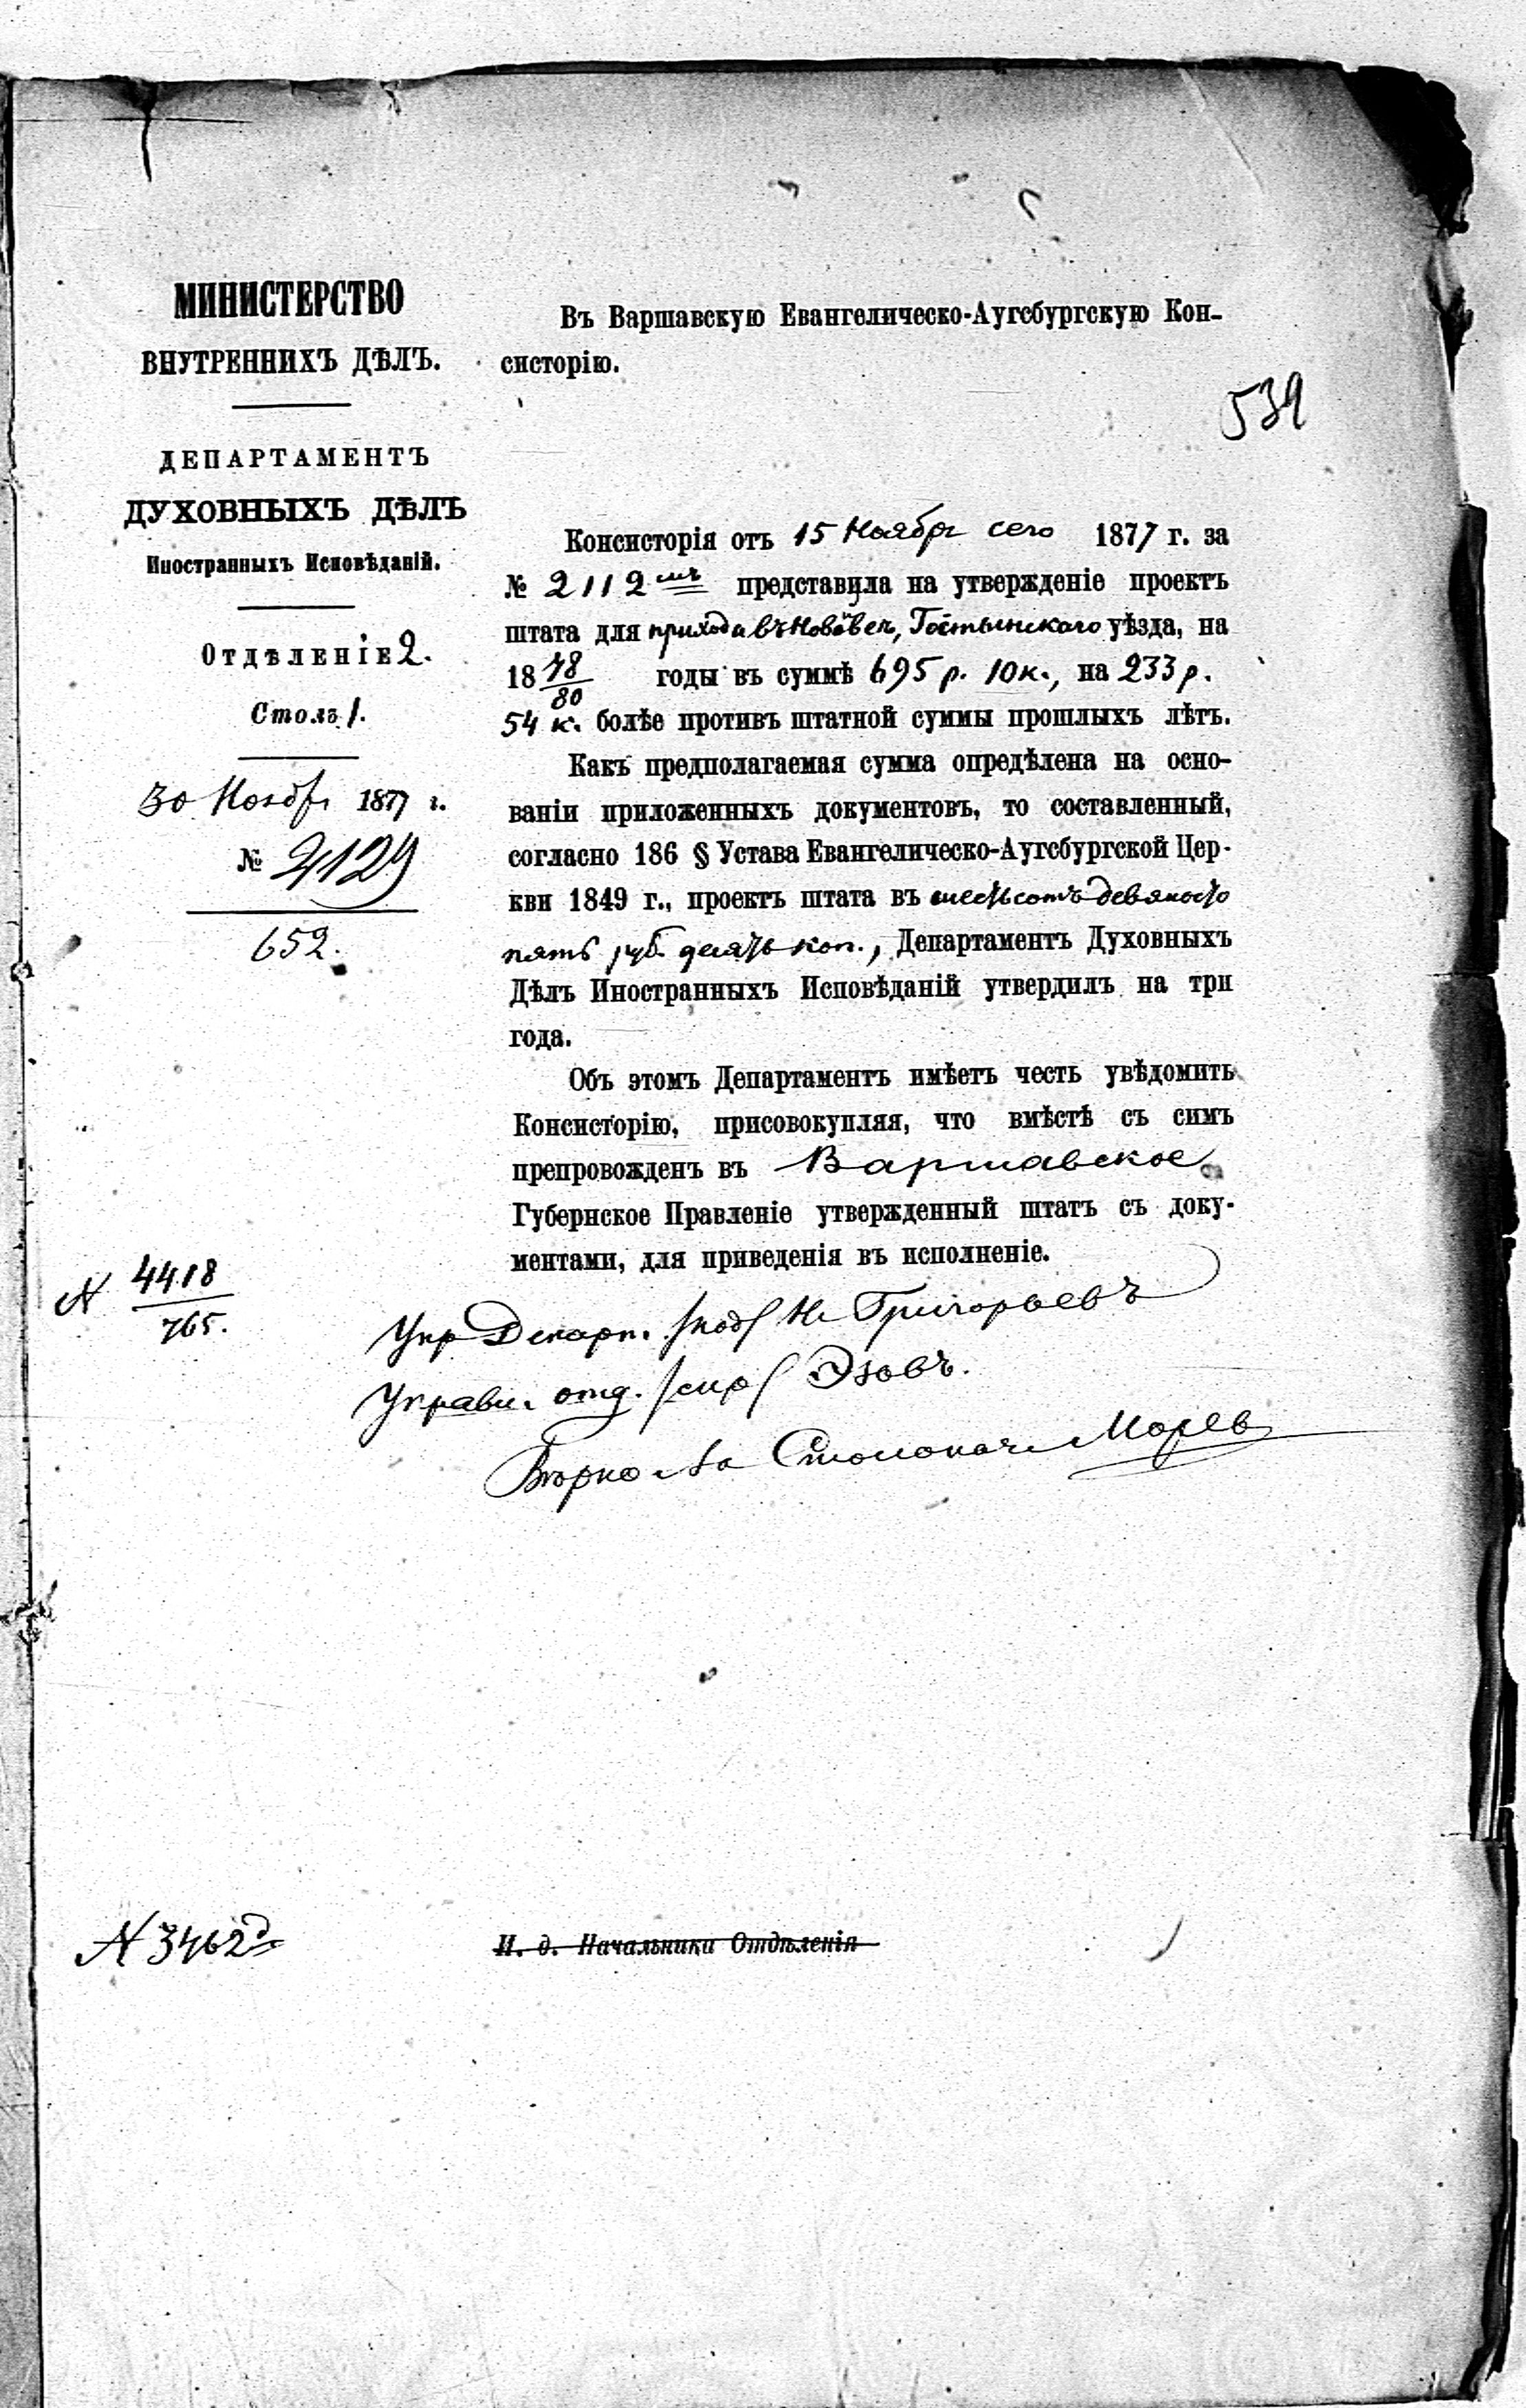 МИНИСТЕРСТВО
ВНУТРЕННИХЪ ДѢЛЪ.
ДЕПАРТАМЕНТЪ
ДУХОВНЫХЪ ДѢЛЪ
Иностранныхъ Исповѣданій.
Отдѣленіе 2.
Столъ 1.
30 Ноября 1877 г.
№ 4129
652.
N 4418
765.
N 3462
Въ Варшавскую Евангелическо-Аугсбургскую Кон-
систорію.
539
Консисторія отъ 15 Ноября сего 1877 г. за
№ 2112 представила на утвержденіе проектъ
штата для прихода въ Новавесь, Гостынскаго уѣзда, на
18 78/80 годы въ суммѣ 695 р. 10 к., на 233 р.
54 к. болѣе противъ штатной суммы прошлыхъ лѣтъ.
Какъ предполагаемая сумма опредѣлена на осно-
ваніи приложенныхъ документовъ, то составленный,
согласно 186 § Устава Евангелическо-Аугсбургской Цер-
кви 1849 г., проектъ штата въ шестьсотъ девяносто
пять руб. десять коп., Департаментъ Духовныхъ
Дѣлъ Иностранныхъ Исповѣданій утвердилъ на три
года.
Объ этомъ Департаментъ имѣетъ честь увѣдомить
Консисторію, присовокупляя, что вмѣстѣ съ симъ
препровожденъ въ Варшавское
Губернское Правленіе утвержденный штатъ съ доку-
ментами, для приведенія въ исполненіе.
Упр Департ. /под/ Н Григорьевъ
Управл. отд. /скр/ Эзовъ.
Вѣрно СтолоначМорев
И. д. Начальника Отдѣленія